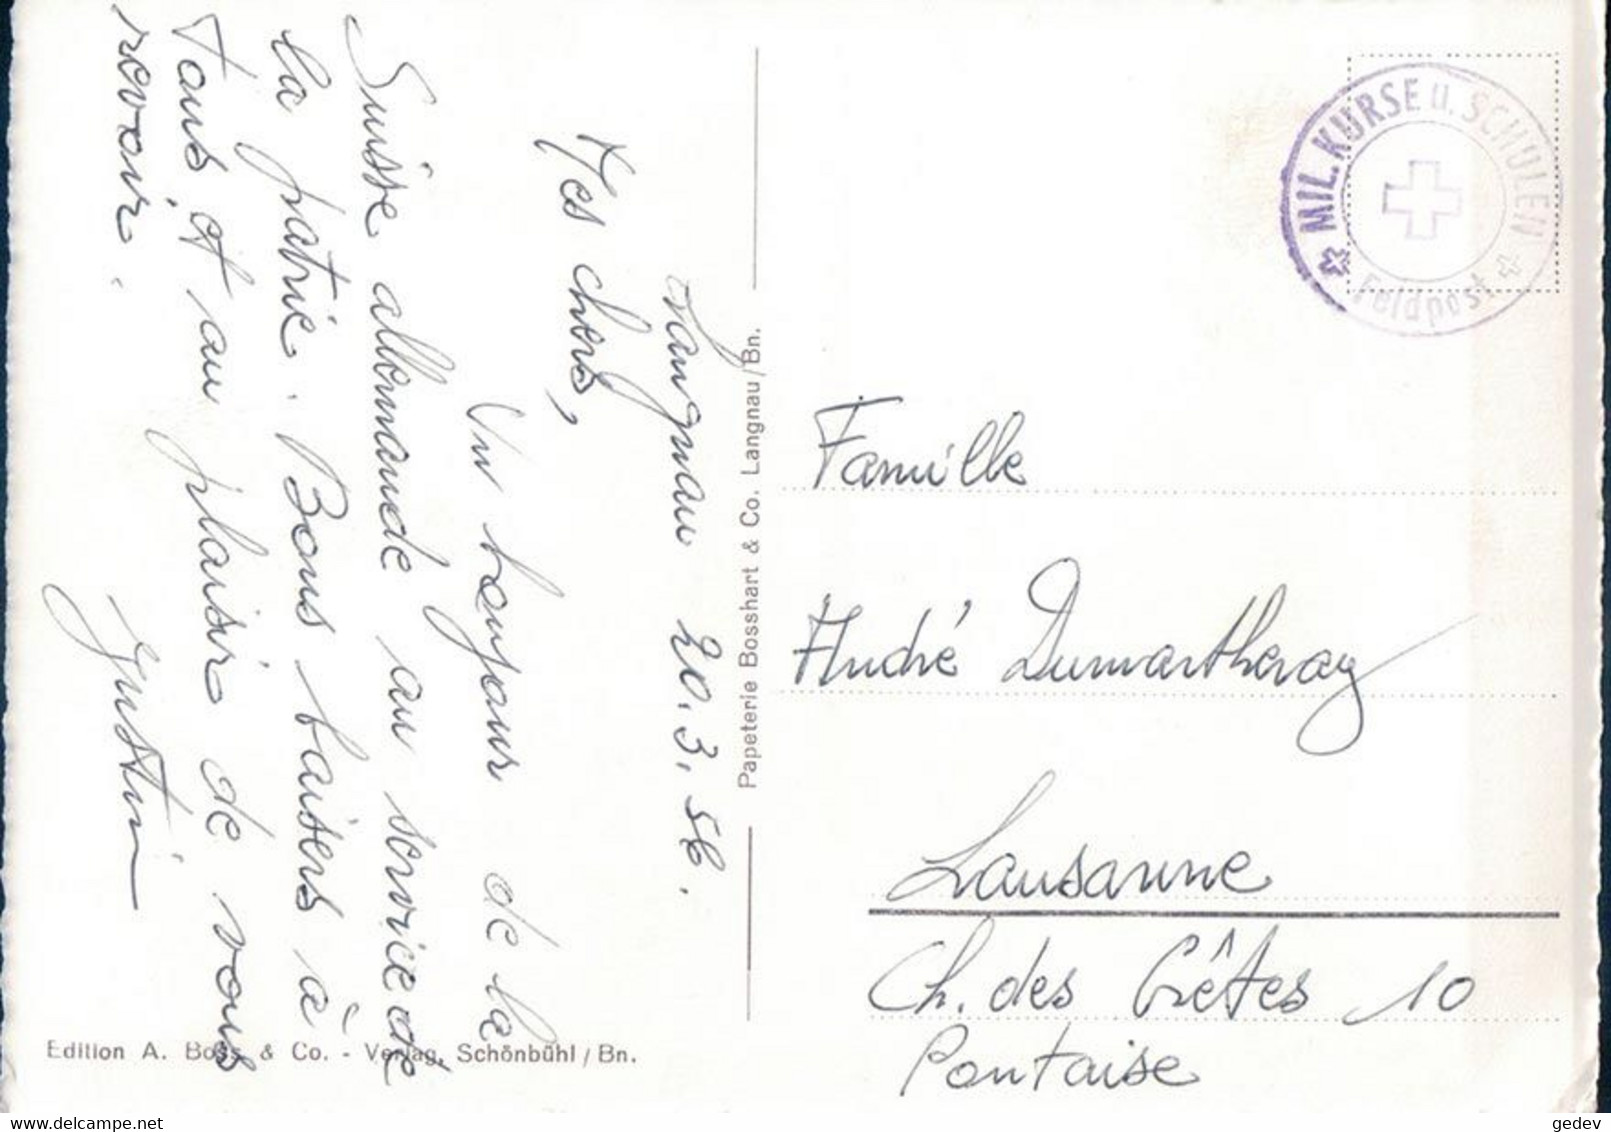 Langnau 20.3.56.
Mes chers,
Un bonjour de la
Suisse allemande au service de
la patrie. Bons baisers à
tous, et au plaisir de vous
revoir.
Justin
Papeterie Bosshart & Co. Langnau/Bn.
Edition A. Boss & Co. - Verlag, Schönbühl/Bn.
* MIL. KURSE u. SCHULEN *
Feldpost
Famille
André Dumartheray
Lausanne
Ch. des Crêtes 10
Pontaise
delcampe.net
gedev